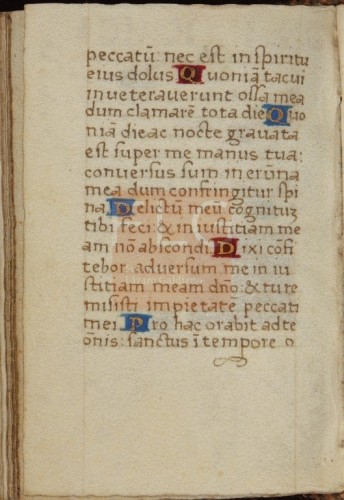 peccatū: nec est in spiritu
eius dolus Quoniā tacui
inveteraverunt ossa mea
dum clamarē tota die Quo
niā die ac nocte gravata
est super me manus tua:
conversus sum in erūna
mea dum confringitur spi
na Delictū meū cognitūz
tibi feci: & iniustitiam me
am nō abscondi. Dixi cōfi
tebor adversum me in iu
stitiam meam dn̄o: & tu re
misisti impietatē peccati
mei. Pro hac orabit ad te
ōnis: sanctus ī tempore o